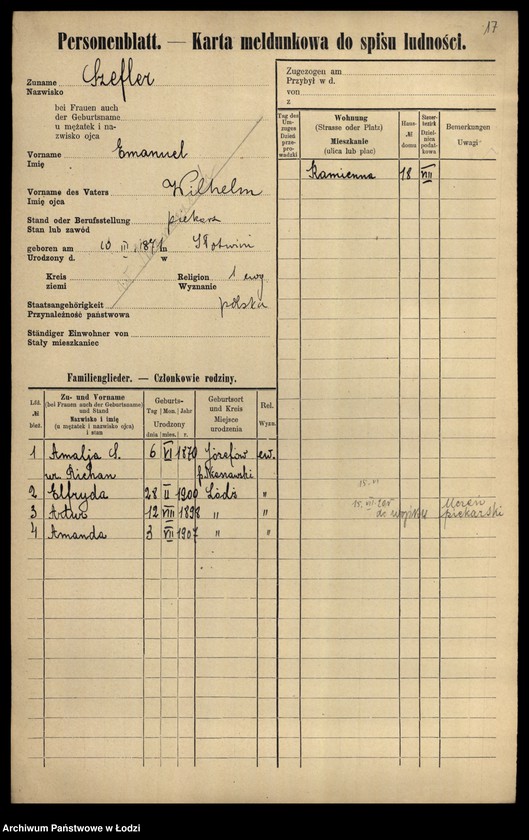 17
Personenblatt. — Karta meldunkowa do spisu ludności.
Zuname Szefler
Nazwisko
bei Frauen auch
der Geburtsname
u mężatek i na-
zwisko ojca
Vorname Emanuel
Imię
Vorname des Vaters Wilhelm
Imię ojca
Stand oder Berufsstellung piekarz
Stan lub zawód
geboren am 10 III 1871 in Słotwini
Urodzony d. w
Kreis Religion 1 ewg
ziemi Wyznanie
Staatsangehörigkeit polska
Przynależność państwowa
Ständiger Einwohner von
Stały mieszkaniec
Zugezogen am
Przybył w d.
von
z
Tag des Um-zuges Dzień prze-prowadzki
Wohnung (Strasse oder Platz) Mieszkanie (ulica lub plac)
Haus- № domu
Steuer-bezirk Dziel-nica podat-kowa
Bemerkungen Uwagi
Kamienna 18 VIII
Familienglieder. — Członkowie rodziny.
Lfd. № bież.
Zu- und Vorname (bei Frauen auch der Geburtsname) und Stand Nazwisko i imię (u mężatek i nazwisko ojca) i stan
Geburts- Tag Mon. Jahr Urodzony dnia mies. r.
Geburtsort und Kreis Miejsce urodzenia
Rel. Wyzn.
1 Amalja S. 6 VI 1870 Józefów ew.
2 Elfryda 28 II 1900 Łódź "
15. VI
3 Artur 12 VIII 1898 " "
15. VII
piekarski
4 Amanda 3 VII 1907 " "
Archiwum Państwowe w Łodzi